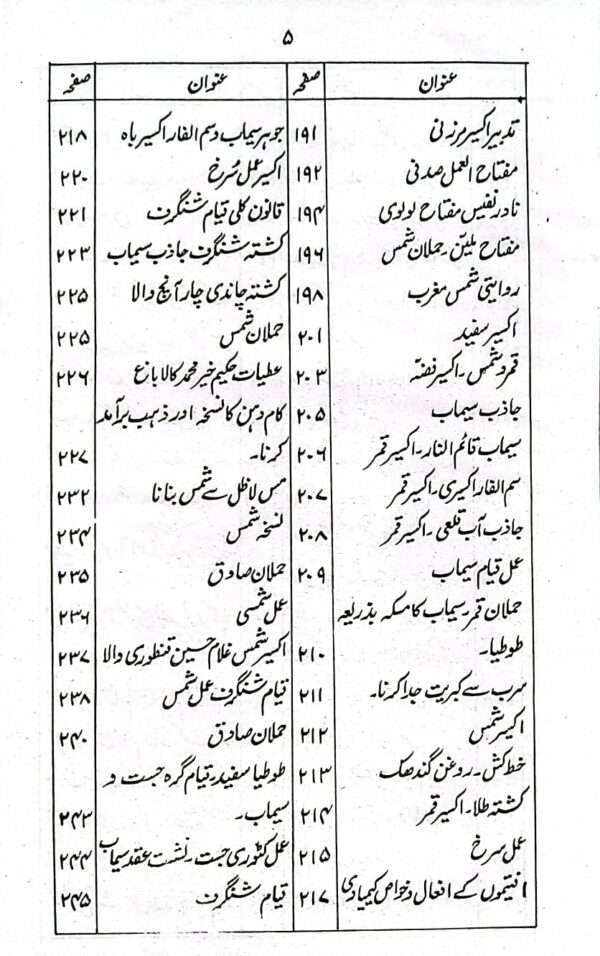 ۵
عنوان صفحہ
تدبیر اکسیر مزنی ۱۹۱
مفتاح العمل صدنی ۱۹۲
نادر نفیس مفتاح لولوی ۱۹۴
مفتاح ملین۔ حملان شمس ۱۹۶
روایتی شمس مغرب ۱۹۸
اکسیر سفید ۲۰۱
قمر و شمس۔ اکسیر فضہ ۲۰۳
جاذب سیماب ۲۰۵
سیماب قائم النار۔ اکسیر قمر ۲۰۶
سم الفار اکسیری۔ اکسیر قمر ۲۰۷
جاذب آب قلعی۔ اکسیر قمر ۲۰۸
عمل قیام سیماب ۲۰۹
حملان قمر سیماب کا مسکہ بذریعہ
طوطیا۔ ۲۱۰
سرب سے کبریت جدا کرنا۔ ۲۱۱
اکسیر شمس ۲۱۲
خط کش۔ روغن گندھک ۲۱۳
کشتہ طلا۔ اکسیر قمر ۲۱۴
عمل سرخ ۲۱۵
انتیموں کے افعال و خواص کیمیاوی ۲۱۷
عنوان صفحہ
جوہر سیماب و سم الفار اکسیر باہ ۲۱۸
اکسیر عمل سُرخ ۲۲۰
قانون کلی قیام شنگرف ۲۲۱
کشتہ شنگرف جاذب سیماب ۲۲۳
کشتہ چاندی چار آنچ والا ۲۲۵
حملان شمس ۲۲۵
عطیات حکیم خیر محمد کالا باغ ۲۲۶
کام دہن کا نسخہ اور ذہب برآمد
کرنا۔ ۲۲۷
مس لاظل سے شمس بنانا ۲۳۲
نسخہ شمس ۲۳۴
حملان صادق ۲۳۵
عمل شمسی ۲۳۶
اکسیر شمس غلام حسین قنطوری والا ۲۳۷
قیام شنگرف عمل شمس ۲۳۸
حملان صادق ۲۴۰
طوطیا سفید۔ قیام گرہ جست و
سیماب۔ ۲۴۳
عمل کٹوری جست۔ نشست عقد سیماب ۲۴۴
قیام شنگرف ۲۴۵